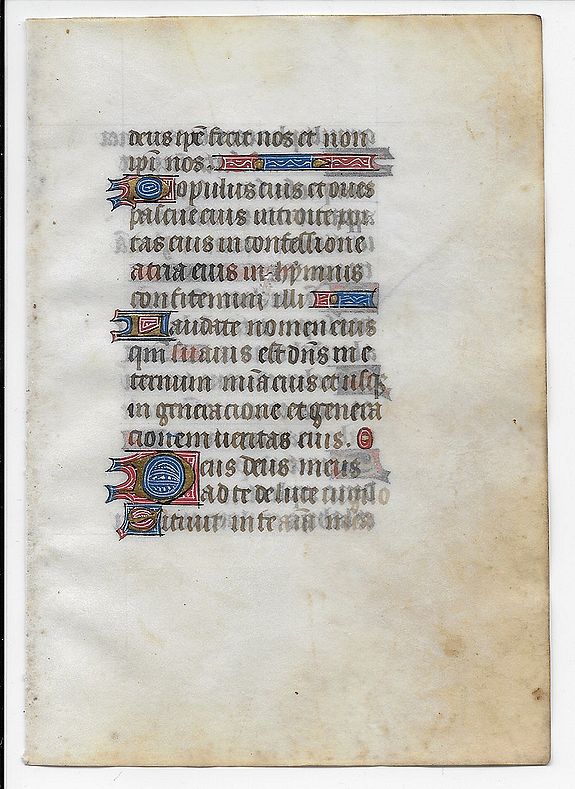 deus ipẽ fecit nos et non
ipi nos.
Populus eius et oues
pascue eius introite por
tas eius in confessione
atria eius in hymnis
confitemini illi
Laudate nomen eius
qm̃ suauis est dñs in e
ternum mĩa eius et usqꝫ
in generacione et genera
cionem ueritas eius. O
Deus deus meus
ad te de luce uigilo
Sitiuit in te aĩa mea